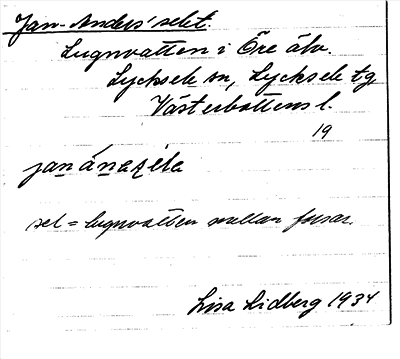 Jan-Anders'selet.
Lugnvatten i Öre älv.
Lycksele sn, Lycksele tg
Västerbottens l.
19
sel = lugnvatten mellan forsar.
Lisa Lidberg 1934